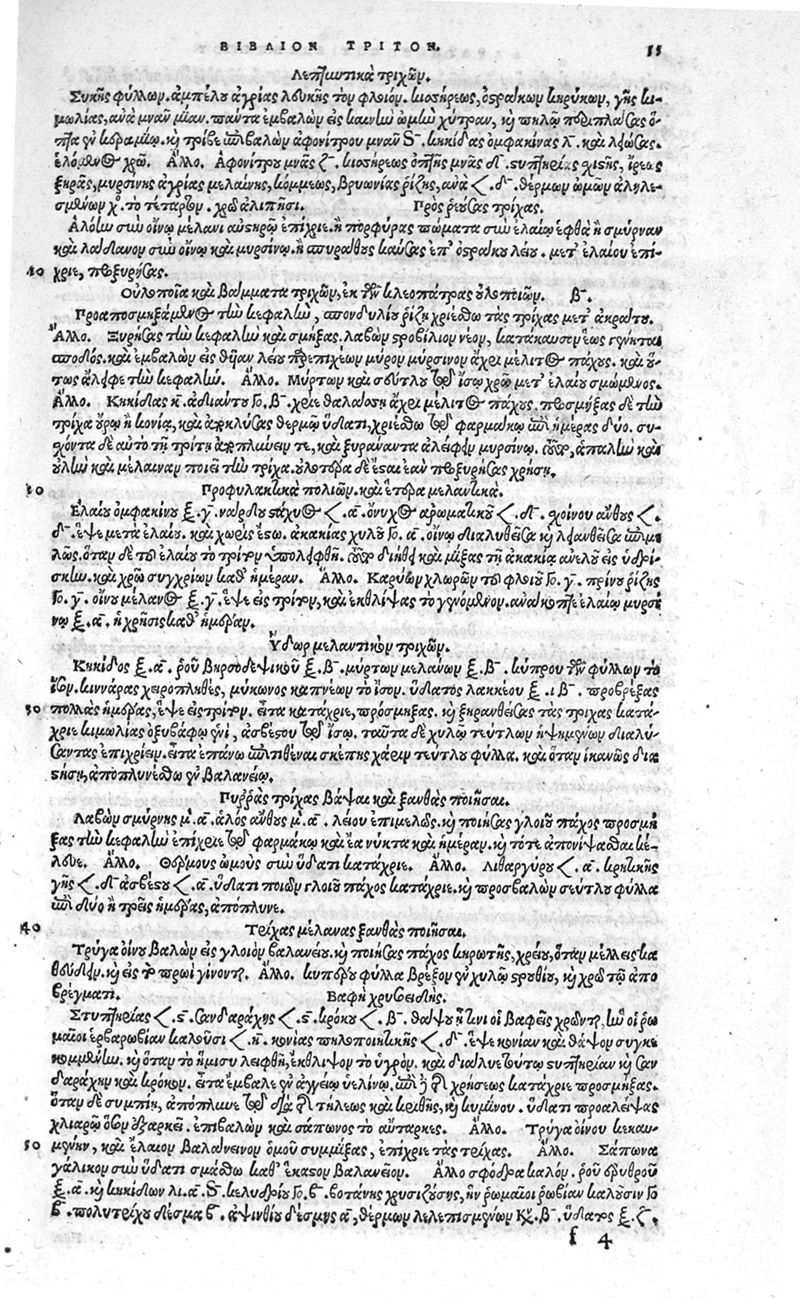 ΒΙΒΛΙΟΝ ΤΡΙΤΟΝ.
Λεπτωτικὰ τριχῶν.
Συκῆς φύλλων. ἀμπέλου ἀγρίας λευκῆς τὸν φλοιόν. κισσήρεως, ὀστράκων κηρύκων, γῆς κι-
μωλίας, ἀνὰ μνᾶν μίαν. πάντα ἐμβαλὼν εἰς καινὴν ὠμὴν χύτραν, καὶ πηλῷ περιπλάσας ὄ-
πτα ἐν κεραμίῳ. καὶ τρίβε ἐπιβαλὼν ἀφονίτρου μνᾶν S. κηκίδας ὀμφακίνας λ. καὶ λεώσας.
ἑλόμενος χρῶ. Ἄλλο. Ἀφονίτρου μνᾶς ζ. κισσήρεως ὀπτῆς μνᾶς δ. στυπτηρίας σχιστῆς, ἴρεως
ξηρᾶς, μυρσίνης ἀγρίας μελαίνης, κόμμεως, βρυωνίας ῥίζης, ἀνὰ <. δ. θέρμων ὠμῶν ἀληλε-
σμένων χο. τὸ τέταρτον. χρῶ ἀλιπῆσι. Πρὸς ῥεύσας τρίχας.
Ἀλόην σὺν οἴνῳ μέλανι αὐστηρῷ ἐπίχριε. ἢ πορφύρας πώματα σὺν ἐλαίῳ ἑφθὰ ἢ σμύρναν
καὶ λάδανον σὺν οἴνῳ καὶ μυρσίνῳ. ἢ σπυράθους καύσας ἐπ' ὀστράκου λείου. μετ' ἐλαίου ἐπί-
10 χριε, προξυρήσας.
Οὐλοποιΐα καὶ βάμματα τριχῶν, ἐκ τῶν κλεοπάτρας οὐλοποιῶν. β.
Προαποσμηξάμενος τὴν κεφαλὴν, σπονδυλίου ῥίζῃ χριέσθω τὰς τρίχας μετ' ἀκράτου.
Ἄλλο. Ξυρήσας τὴν κεφαλὴν καὶ σμήξας. λαβὼν στροβίλιον νέον, κατάκαυσον ἕως γένηται
σποδός. καὶ ἐμβαλὼν εἰς θυίαν λείου παρεπιχέων μύρον μύρσινον ἄχρι μέλιτος πάχους. καὶ οὕ-
τως ἄλειφε τὴν κεφαλήν. Ἄλλο. Μύρτων καὶ σεύτλου τὸ ἴσον χρῶ μετ' ἐλαίου σμώμενος.
Ἄλλο. Κηκίδας κ. ἀδιάντου Γο. β. χρῖε θαλάσσῃ ἄχρι μέλιτος πάχους. προσμήξας δὲ τὴν
τρίχα οὔρῳ ἢ κονίᾳ, καὶ ἀποκλύσας θερμῷ ὕδατι, χριέσθω τῷ φαρμάκῳ ἐπὶ ἡμέρας δύο. συ-
σχόντα δὲ αὐτὸ τῇ τρίτῃ ἀποπλύνειν τε, καὶ ξυράναντα ἀλείφειν μυρσίνῳ. τοῦτο, ἁπαλὴν καὶ
οὔλην καὶ μέλαιναν ποιεῖ τὴν τρίχα. οὐλοτέρα δὲ ἔσται ἐὰν προξυρήσας χρήσῃ.
20 Προφυλακτικὰ πολιῶν. καὶ ἕτερα μελαντικά.
Ἐλαίου ὀμφακίνου ξ. γ. νάρδου στάχυος <. α. ὄνυχος ἀρωματικοῦ <. δ. σχοίνου ἄνθους <.
δ. ἕψε μετὰ ἐλαίου. καὶ χωρὶς ἔστω. ἀκακίας χυλοῦ Γο. α. οἴνῳ διαλυθεῖσα καὶ λειανθεῖσα ἐπιμε-
λῶς. ὅταν δὲ τοῦ ἐλαίου τὸ τρίτον ὑπολειφθῇ. τοῦτο διήθει καὶ μίξας τῇ ἀκακίᾳ ἀνελοῦ εἰς ὑδρί-
σκην. καὶ χρῶ συγχρίων καθ' ἡμέραν. Ἄλλο. Καρύων χλωρῶν τοῦ φλοιοῦ Γο. γ. πρίνου ῥίζης
Γο. γ. οἴνου μέλανος ξ. γ. ἕψε εἰς τρίτον, καὶ ἐκθλίψας τὸ γενόμενον. ἀνάκοπτε ἐλαίῳ μυρσί
νῳ ξ. α. ἡ χρῆσις καθ' ἡμέραν.
Ὕδωρ μελαντικὸν τριχῶν.
Κηκῖδος ξ. α. ῥοῦ βυρσοδεψικοῦ ξ. β. μύρτων μελάνων ξ. β. κύπρου τῶν φύλλων τὸ
ἴσον. κιννάρας χειροπληθὲς, μύκωνος καπνέων τὸ ἴσον. ὕδατος λακκέου ξ. ιβ. προβρέξας
30 πολλὰς ἡμέρας, ἕψε εἰς τρίτον. εἶτα κατάχριε, πρόσμηξας. καὶ ξηρανθείσας τὰς τρίχας κατά-
χριε κιμωλίας ὀξυβάφῳ ἑνὶ, ἀσβέστου τῷ ἴσῳ. ταῦτα δὲ χυλῷ τεύτλων ἡψημένων διαλύ-
σαντας ἐπιχρίειν. εἶτα ἐπάνω ἐπιτιθέναι σκέπης χάριν τεύτλου φύλλα. καὶ ὅταν ἱκανῶς δια
στήσῃ, ἀποπλυνέσθω ἐν βαλανείῳ.
Πυρρὰς τρίχας βάψαι καὶ ξανθὰς ποιῆσαι.
Λαβὼν σμύρνης μ. α. ἁλὸς ἄνθους μ. α. λείου ἐπιμελῶς. καὶ ποιήσας γλοιοῦ πάχος προσμή
ξας τὴν κεφαλὴν ἐπίχριε τῷ φαρμάκῳ καὶ ἔα νύκτα καὶ ἡμέραν. καὶ τότε ἀπονίψασθαι κέ-
λευε. Ἄλλο. Θέρμους ὠμοὺς σὺν ὕδατι κατάχριε. Ἄλλο. Λιθαργύρου <. α. κρητικῆς
γῆς <. δ. ἀσβέστου <. α. ὕδατι ποιῶν γλοιοῦ πάχος κατάχριε. καὶ προσβαλὼν σεύτλου φύλλα
ἐπὶ δύο ἢ τρεῖς ἡμέρας, ἀπόπλυνε.
40 Τρίχας μέλανας ξανθὰς ποιῆσαι.
Τρύγα οἴνου βαλὼν εἰς γλοιὸν βαλανείου. καὶ ποιήσας πάχος κηρωτῆς, χρίου, ὅταν μέλλεις κα
θεύδειν. καὶ εἰς τὸ πρωῒ γίνονται. Ἄλλο. Κυπέρου φύλλα βρέξον ἐν χυλῷ στρουθίου, καὶ χρῶ τῷ ἀπο
βρέγματι. Βαφὴ χρυσειδής.
Στυπτηρίας <. ς. σανδαράχης <. ς. κρόκου <. β. θάψου ᾗ τινι οἱ βαφεῖς χρῶνται, ἣν οἱ ῥω
μαῖοι ἑρβαρωβίαν καλοῦσι <. η. κονίας πηλοποιητικῆς <. δ. ἕψε κονίαν καὶ θάψον συγκε
κομμένην. καὶ ὅταν τὸ ἥμισυ λειφθῇ, ἔκθλιψον τὸ ὑγρόν. καὶ διάλυε τούτῳ στυπτηρίαν καὶ σαν
δαράχην καὶ κρόκον. εἶτα ἔμβαλε ἐν ἀγγείῳ ὑελίνῳ. ἐπὶ δὲ τῆς χρήσεως κατάχριε προσμήξας.
ὅταν δὲ συμπίῃ, ἀπόπλυνε τῷ διὰ τῆς τήλεως καὶ κριθῆς, καὶ κυμίνου. ὕδατι προαλείψας
χλιαρῷ ὅσον ἐξαρκεῖ. ἐπιβαλὼν καὶ σάπωνος τὸ αὔταρκες. Ἄλλο. Τρύγα οἴνου κεκαυ-
50 μένην, καὶ ἔλαιον βαλανινον ὁμοῦ συμμίξας, ἐπίχριε τὰς τρίχας. Ἄλλο. Σάπωνα
γάλικον σὺν ὕδατι σμάσθω καθ' ἕκαστον βαλανεῖον. Ἄλλο σφόδρα καλόν. ῥοῦ ἐρυθροῦ
ξ. α. καὶ κηκίδων λι. α. S. κελυδρίου Γο. ϐ. βοτάνης χρυσιζούσης, ἣν ῥωμαῖοι ῥωβίαν καλοῦσιν Γο
ϐ. πολυτρίχου δέσμα ϐ. ἀψινθίου δέσμης α, θέρμων λελεπισμένων Κξ. β. ὕδατος ξ. ζ.
f 4